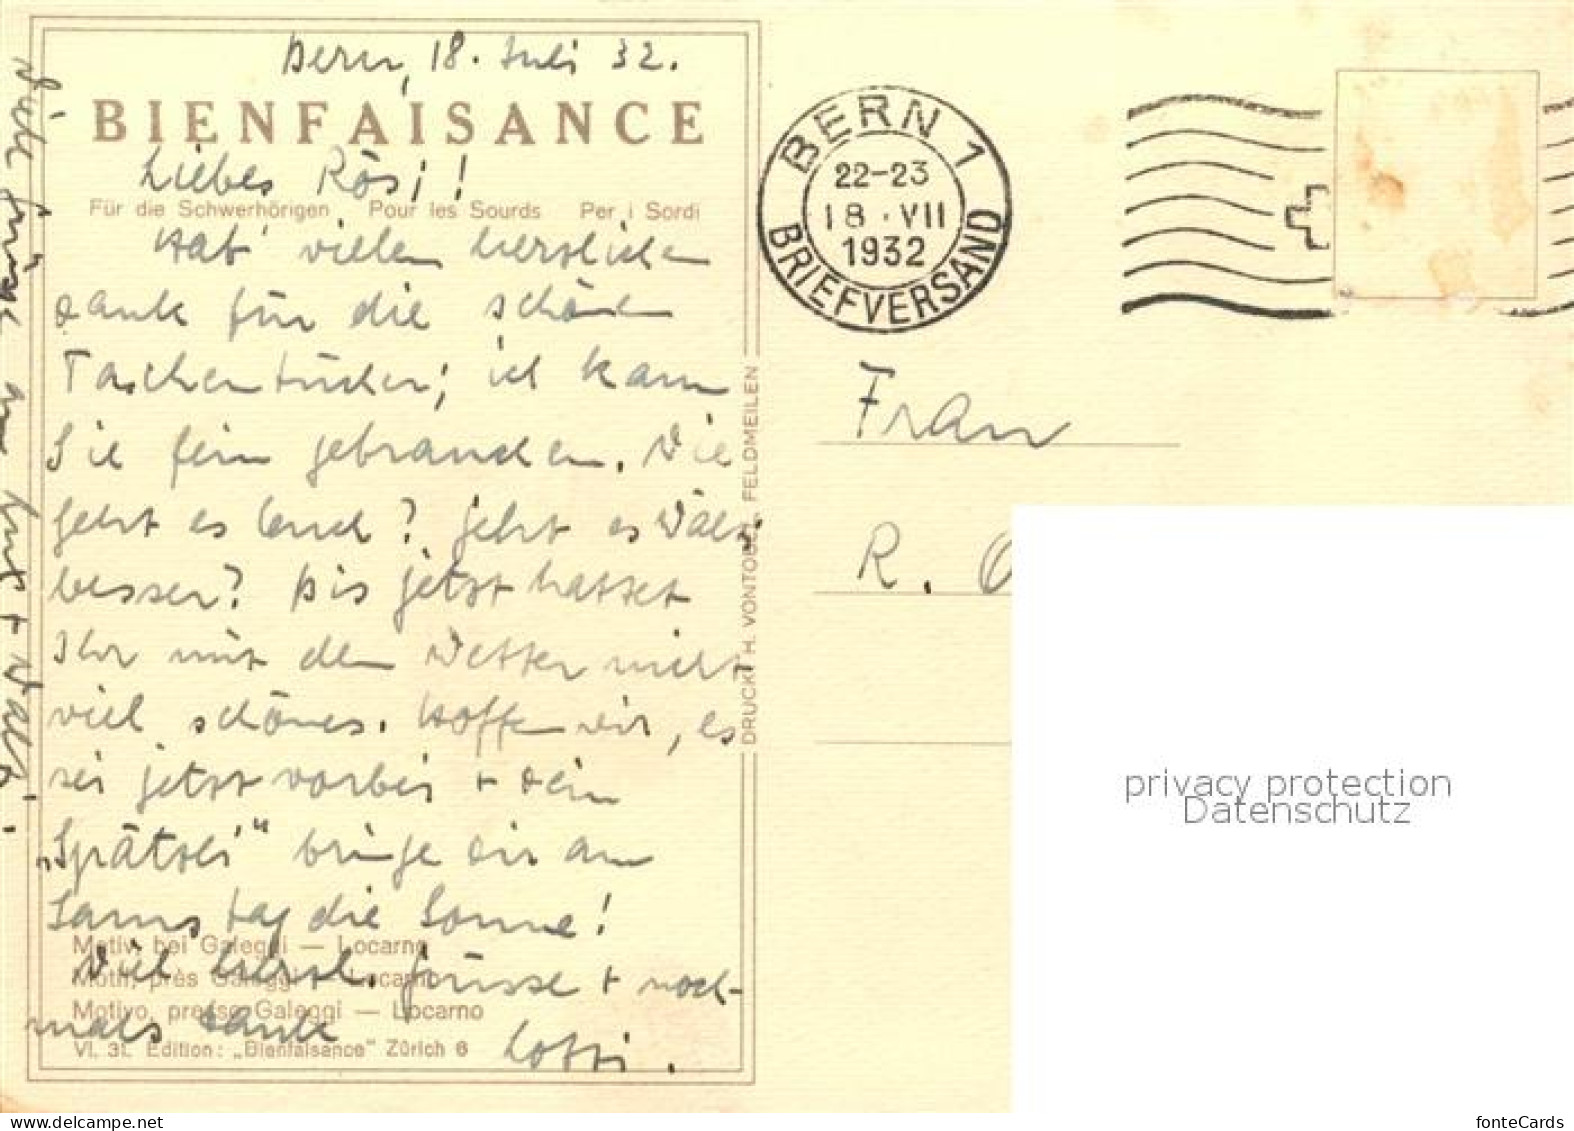 Bern, 18. Juli 32.
BIENFAISANCE
Liebes Rösi!
Für die Schwerhörigen Pour les Sourds Per i Sordi
Hab' vielen herzlichen
Dank für die schönen
Taschentücher; ich kann
Sie fein gebrauchen. Wie
geht es Euch? Geht es Wälti
besser? Bis jetzt hattet
Ihr mit dem Wetter nicht
viel schönes. Hoffen wir, es
sei jetzt vorbei + Dein
"Spätzli" bringe Dir am
Samstag die Sonne!
Viel herzl. Grüsse + noch-
mals Danke Lotti.
Motiv bei Galeggi — Locarno
Motif, près Galeggi — Locarno
Motivo, presso Galeggi — Locarno
VI. 31. Edition: „Bienfaisance" Zürich 6
Viele Grüsse an +
DRUCK: H. VONTOBEL, FELDMEILEN
BERN 1
22-23
18.VII
1932
BRIEFVERSAND
Frau
R.
privacy protection
Datenschutz
www.delcampe.net
fonteCards